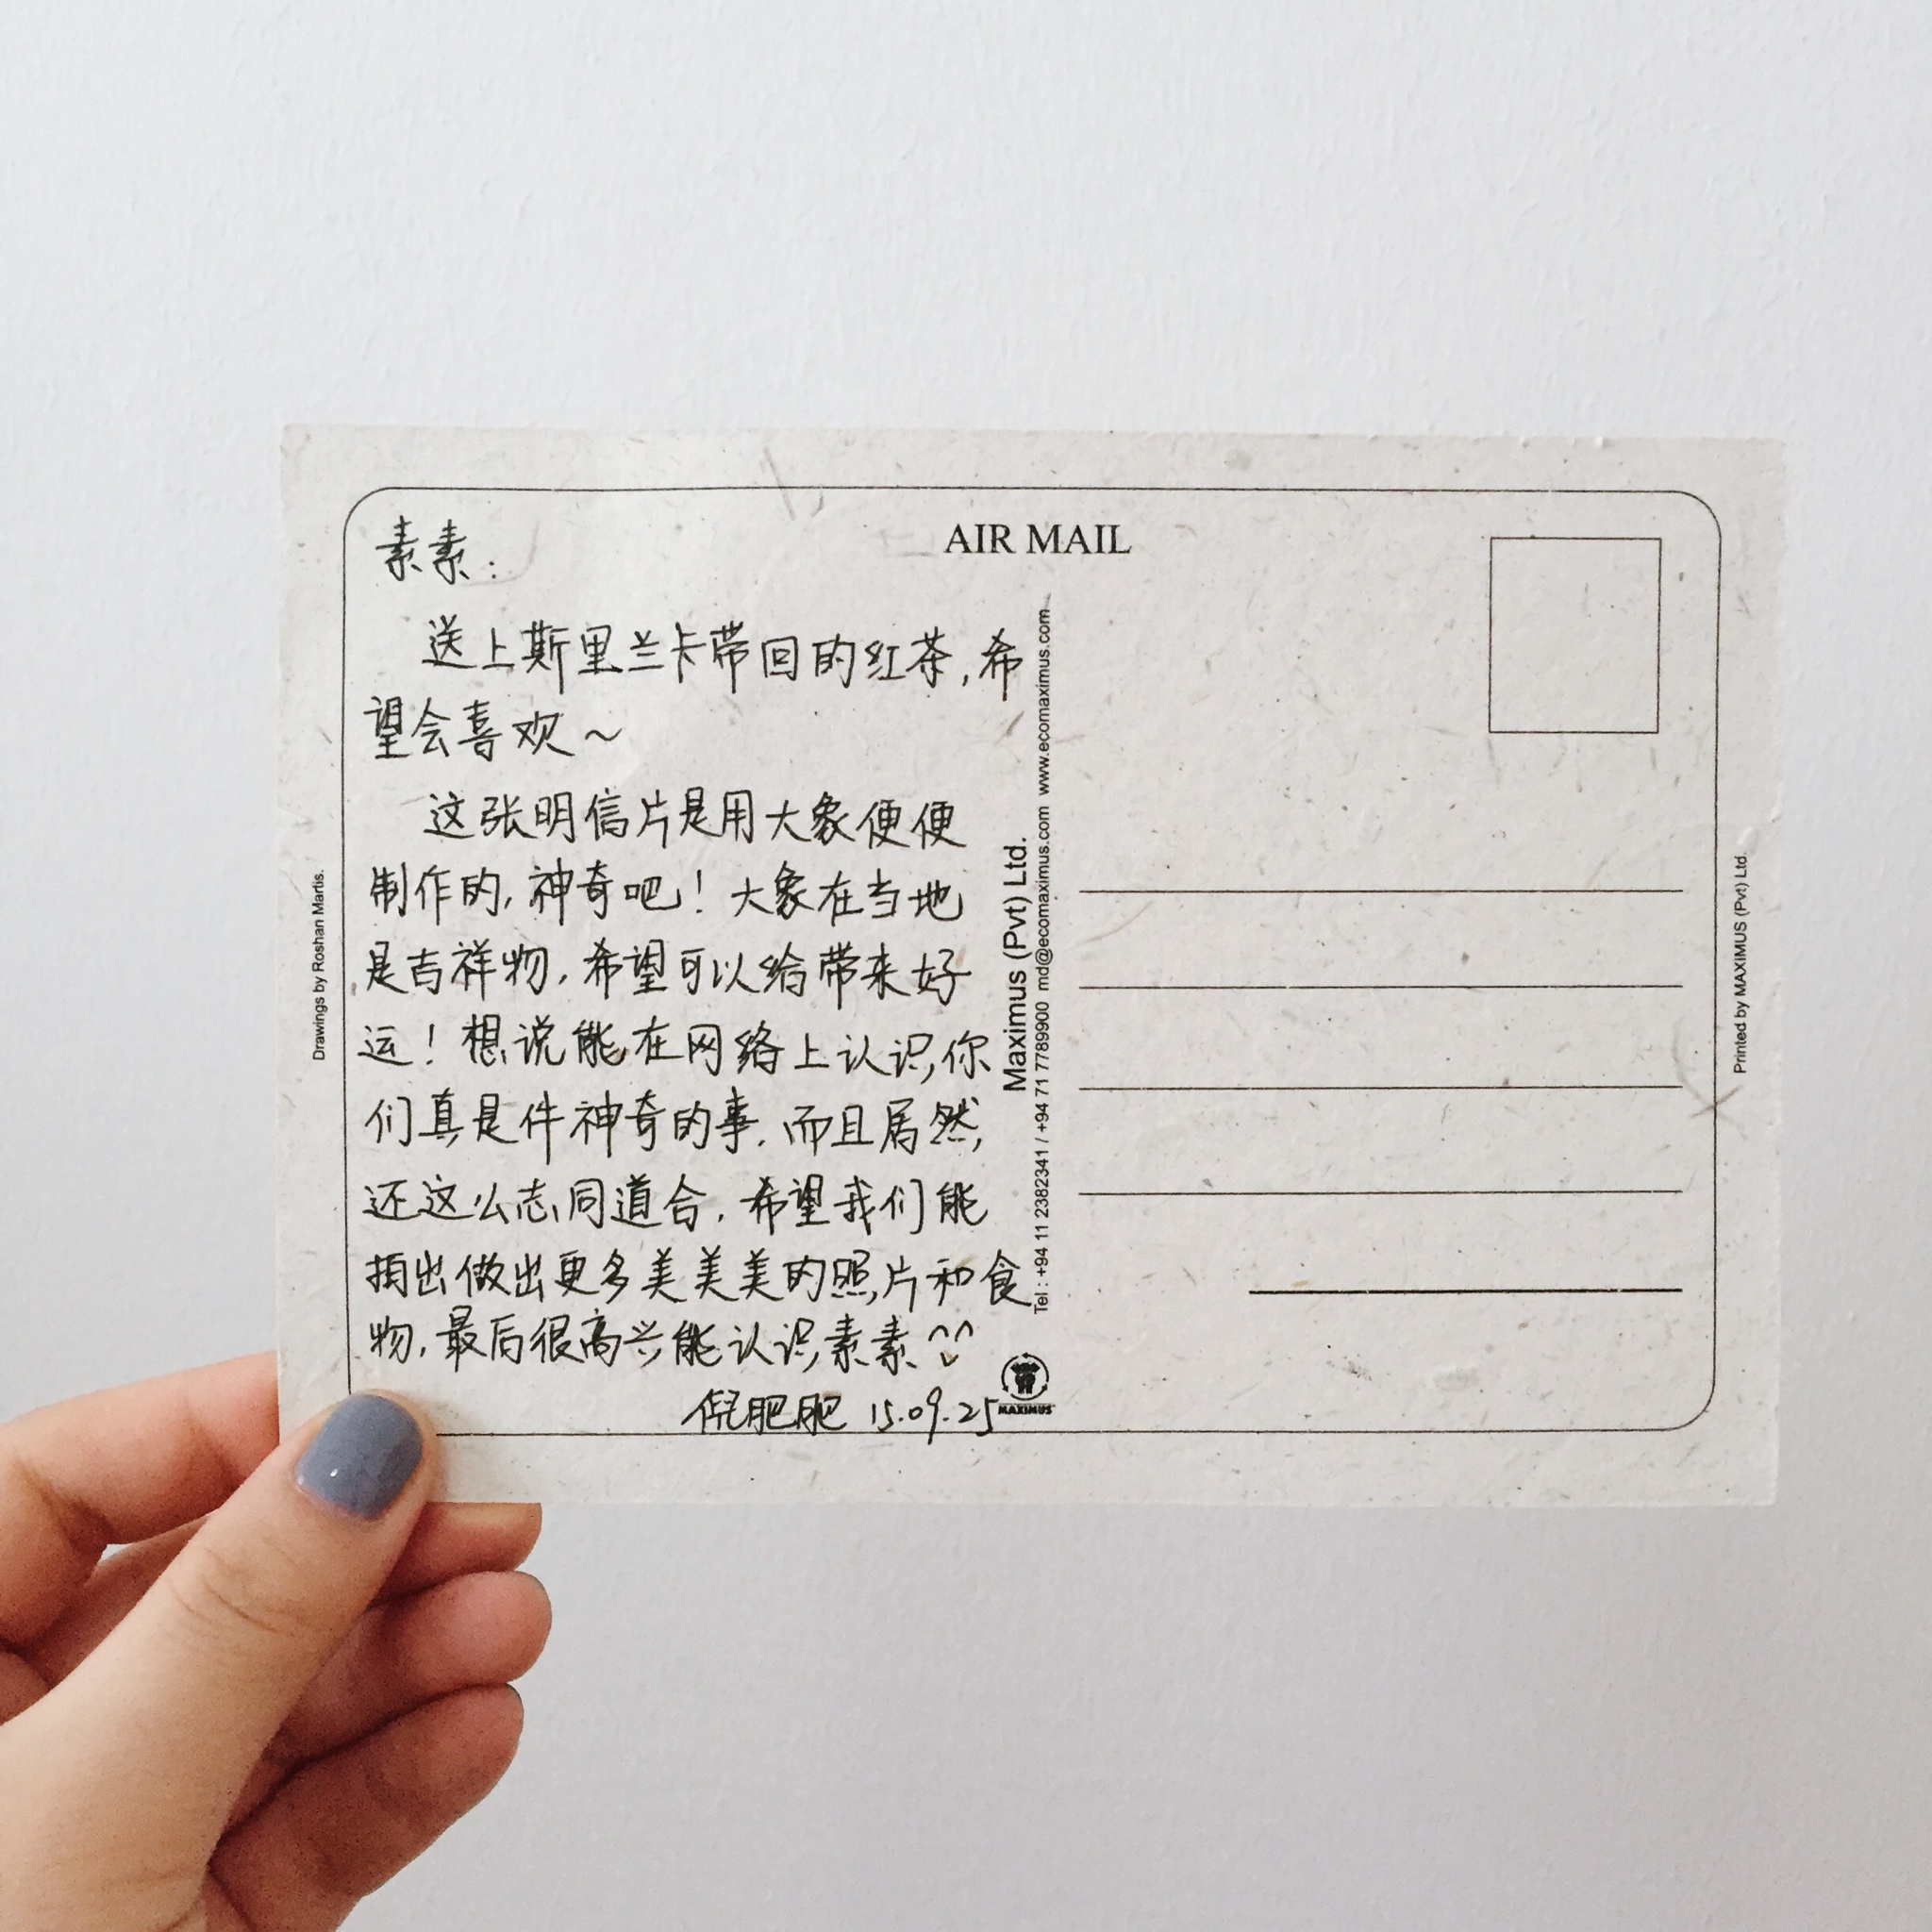 AIR MAIL
素素：
送上斯里兰卡带回的红茶，希
望会喜欢～
这张明信片是用大象便便
制作的，神奇吧！大象在当地
是吉祥物，希望可以给带来好
运！想说能在网络上认识，你
们真是件神奇的事．而且居然，
还这么志同道合．希望我们能
拍出做出更多美美美的照片和食
物．最后很高兴能认识素素^^
倪肥肥 15.09.25
Drawings by Roshan Martis.
Maximus (Pvt) Ltd.
Tel : +94 11 2382341 / +94 71 7789900 md@ecomaximus.com www.ecomaximus.com
MAXIMUS
Printed by MAXIMUS (Pvt) Ltd.